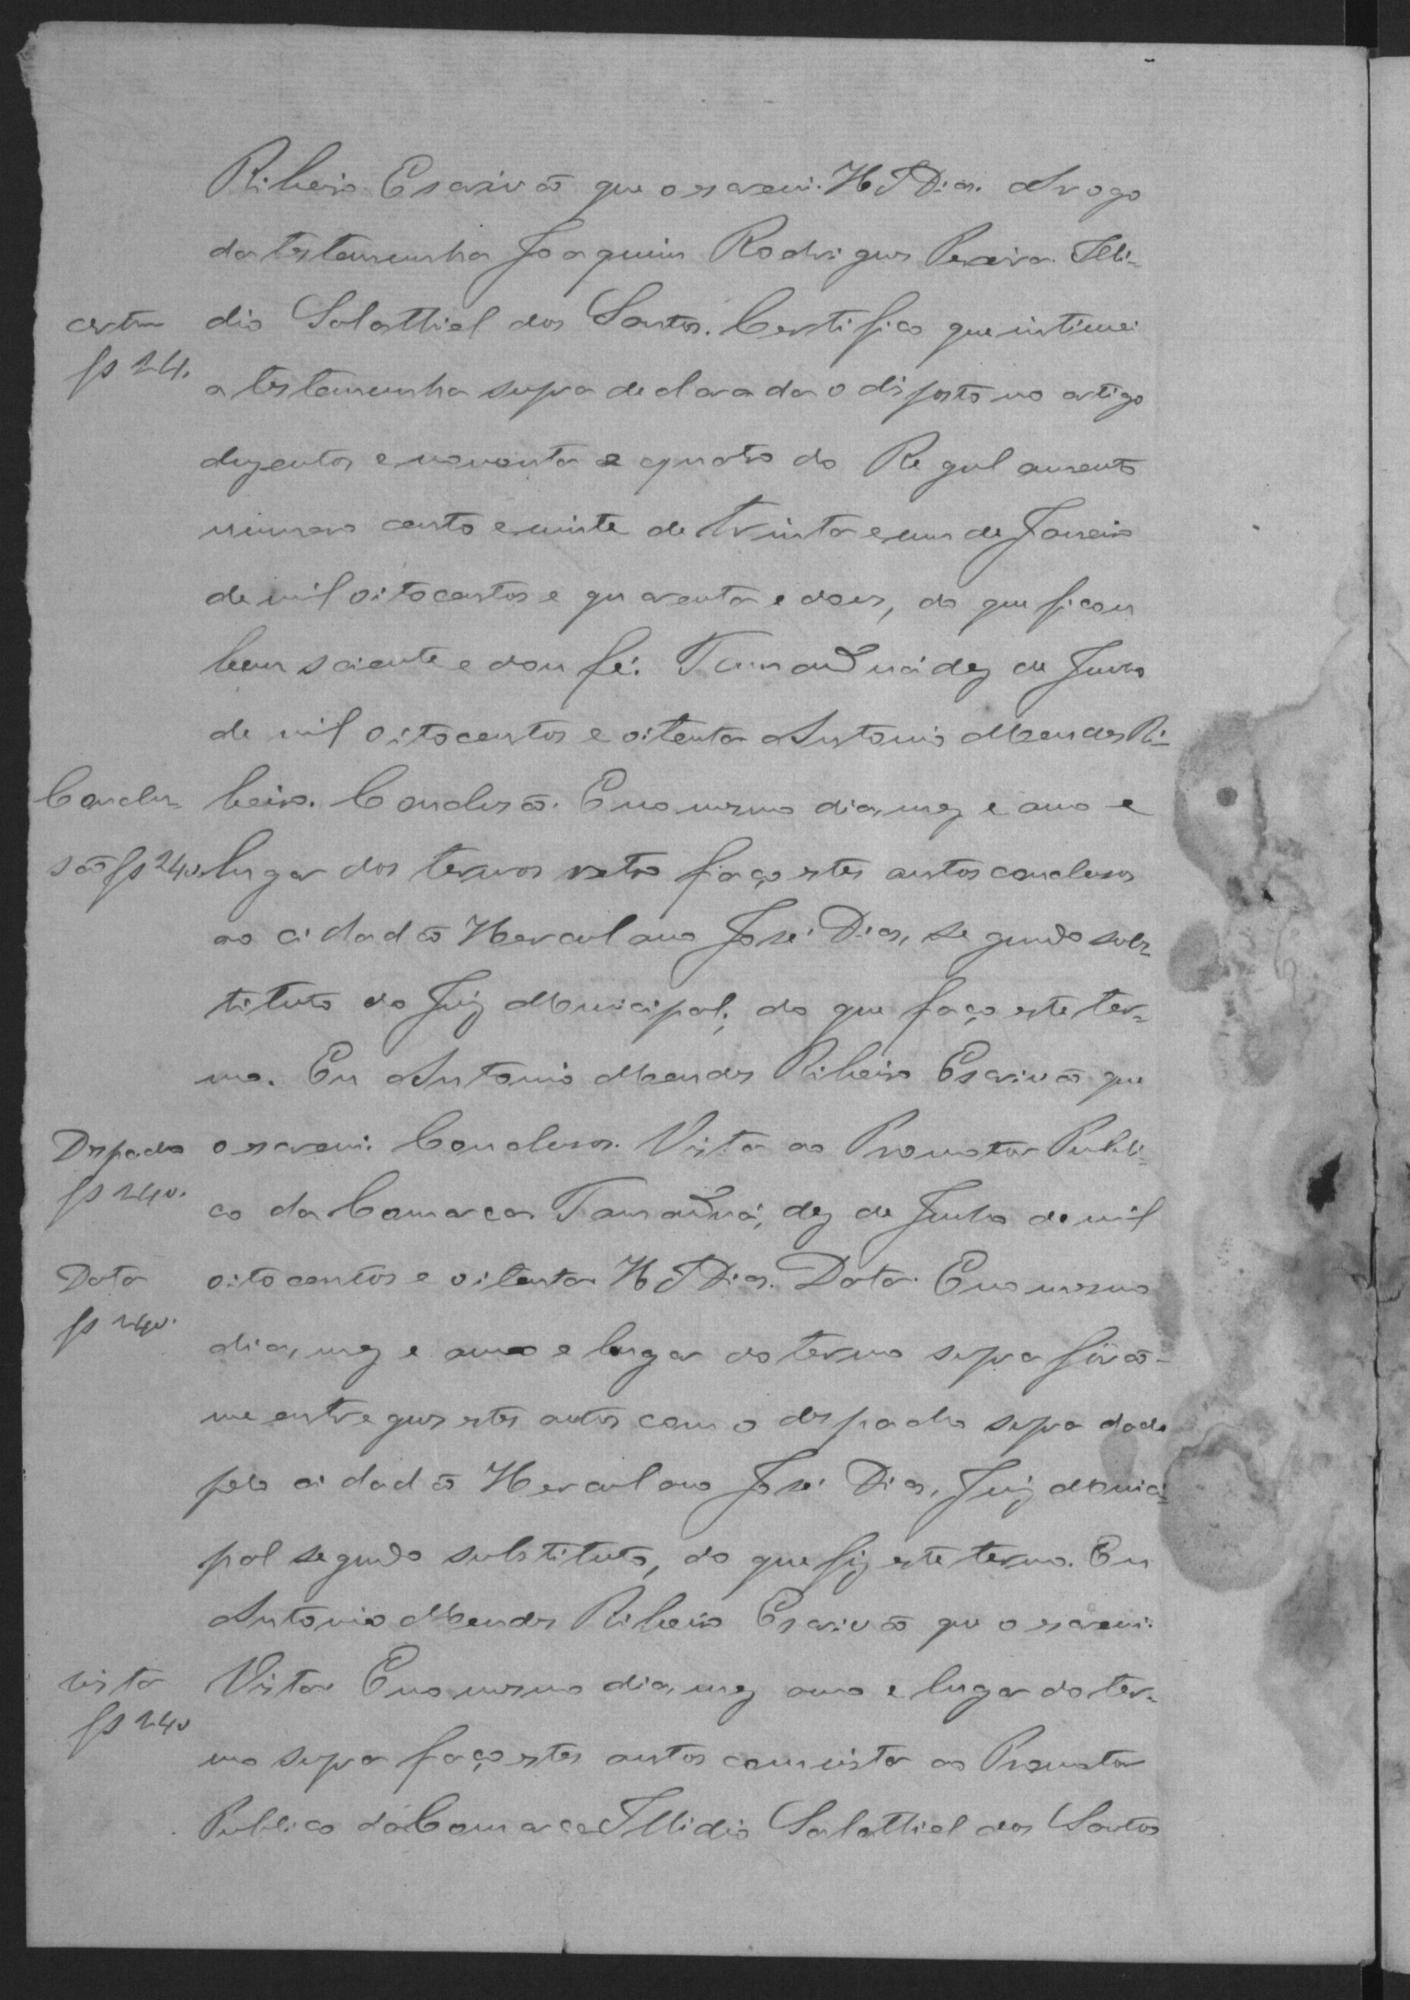 Ribeiro Escrivão que o escrevi. H J Dias. A rogo
da testemunha Joaquim Rodrigues Pereira Illi-
certm dio Salathiel dos Santos. Certifico que intimei
fs 24. a testemunha supra declarada o disposto no artigo
duzentos e noventa e quatro do Regulamento
numero cento e vinte de trinta e um de Janeiro
de mil oitocentos e quarenta e dois, do que ficou
bem sciente e dou fé. Tamanduá dez de Junho
de mil oitocentos e oitenta Antonio Mendes Ri-
Conclu- beiro. Conclusão. E no mesmo dia, mez e anno e
são fs 24v. lugar dos termos retro faço estes autos conclusos
ao cidadão Herculano José Dias, segundo subs-
tituto do Juiz Municipal; do que faço este ter-
mo. Eu Antonio Mendes Ribeiro Escrivão que
Despacho o escrevi. Conclusos. Vista ao Promotor Publi-
fs 24v. co da Comarca. Tamanduá, dez de Junho de mil
Data oitocentos e oitenta. H J Dias. Data. E no mesmo
fs 24v. dia, mez e anno e lugar do termo supra forão-
me entregues estes autos com o despacho supra dado
pelo cidadão Herculano José Dias, Juiz Munici-
pal segundo substituto, do que fiz este termo. Eu
Antonio Mendes Ribeiro Escrivão que o escrevi.
vista Vista. E no mesmo dia, mez anno e lugar do ter-
fs 24v mo supra faço estes autos com vista ao Promotor
Publico da Comarca Illidio Salathiel dos Santos